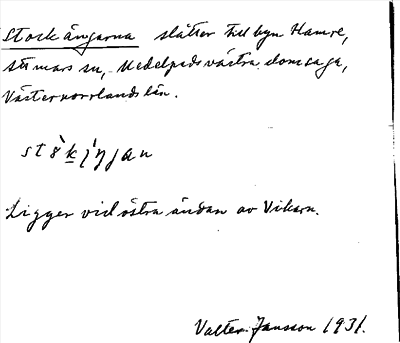 Stockängarna slåtter till byn Hamre,
Medelpads västra domsaga,
Västernorrlands län.
Ligger vid östra ändan av Viksjön.
Valter Jansson 1931.